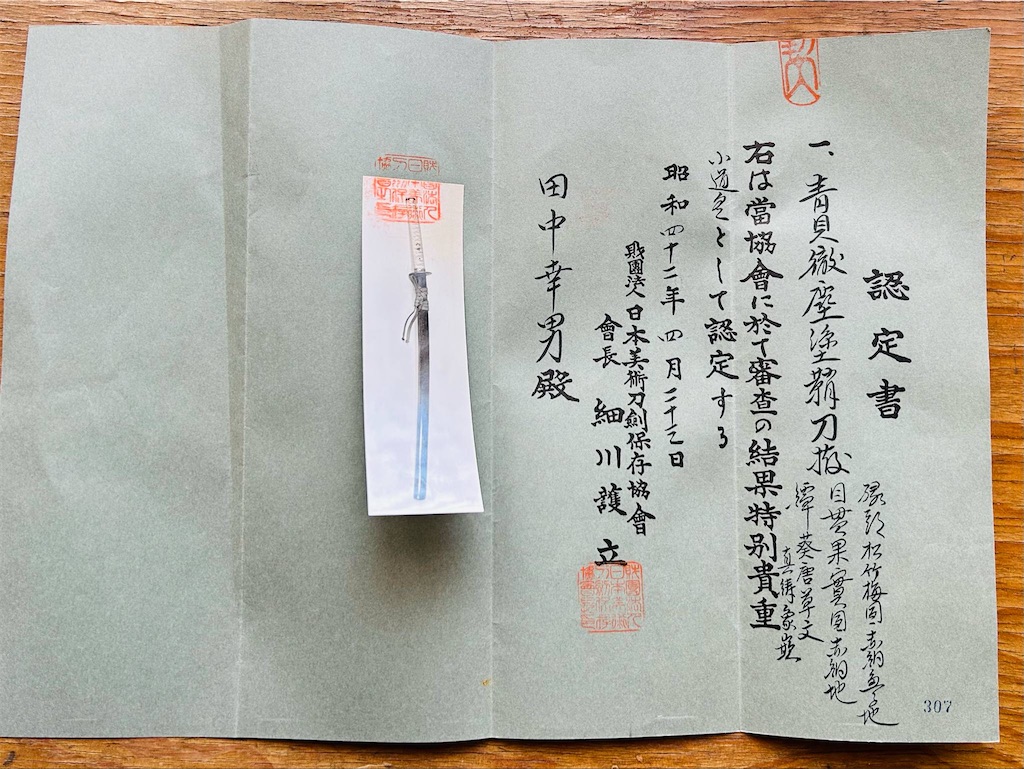 認定書
一、青貝微塵塗鞘刀拵
縁頭松竹梅図赤銅魚々地
目貫果實図赤銅地
鐔葵唐草文
真鍮象嵌
右は當協會に於て審査の結果特別貴重
小道具として認定する
昭和四十二年四月二十三日
財團法人日本美術刀劍保存協會
會長 細川護立
田中幸男殿
307